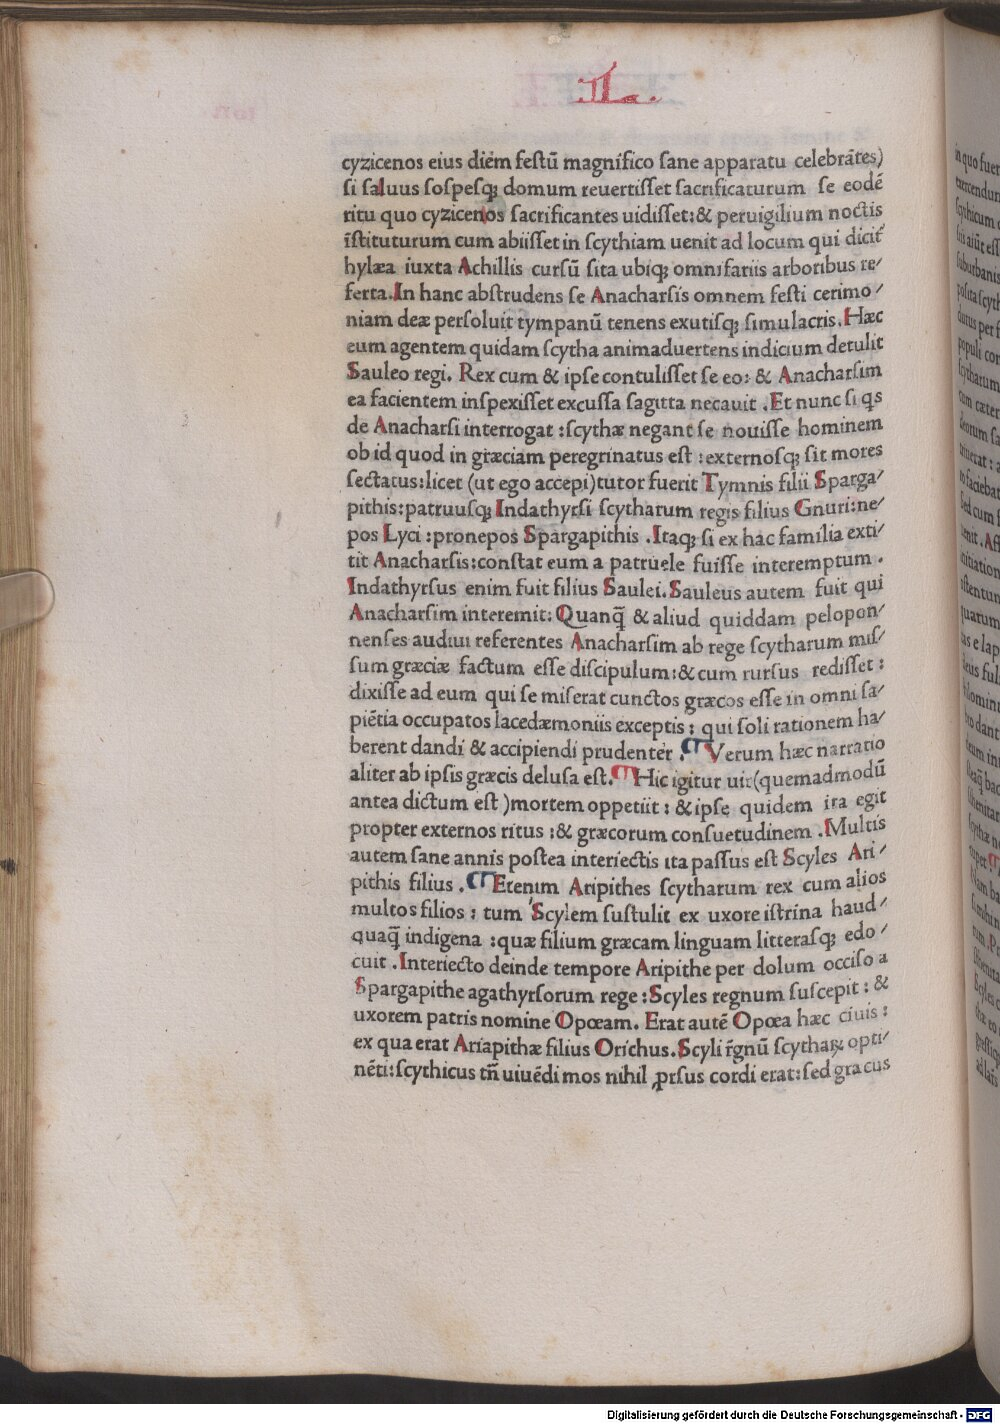 .L.
cyzicenos eius diem festū magnifico sane apparatu celebrātes)
si saluus sospesq; domum reuertisset sacrificaturum se eodē
ritu quo cyzicenos sacrificantes uidisset:& peruigilium noctis
īstituturum cum abiisset in scythiam uenit ad locum qui dicit᷑
hylæa iuxta Achillis cursū sita ubiq; omnifariis arboribus re/
ferta.In hanc abstrudens se Anacharsis omnem festi cerimo/
niam deæ persoluit tympanū tenens exutisq; simulacris.Hæc
eum agentem quidam scytha animaduertens indicium detulit
Sauleo regi. Rex cum & ipse contulisset se eo: & Anacharsim
ea facientem inspexisset excussa sagitta necauit .Et nunc si qs
de Anacharsi interrogat :scythæ negant se nouisse hominem
ob id quod in græciam peregrinatus est :externosq; sit mores
sectatus:licet (ut ego accepi)tutor fuerit Tymnis filii Sparga/
pithis:patruusq; Indathyrsi scytharum regis filius Gnuri:ne/
pos Lyci :pronepos Spargapithis .Itaq; si ex hac familia exti/
tit Anacharsis:constat eum a patruele fuisse interemptum .
Indathyrsus enim fuit filius Saulei.Sauleus autem fuit qui
Anacharsim interemit: Quanq̄ & aliud quiddam pelopon/
nenses audiui referentes Anacharsim ab rege scytharum mis/
sum græciæ factum esse discipulum:& cum rursus redisset :
dixisse ad eum qui se miserat cunctos græcos esse in omni sa/
piētia occupatos lacedæmoniis exceptis : qui soli rationem ha/
berent dandi & accipiendi prudenter .¶Verum hæc narratio
aliter ab ipsis græcis delusa est.¶Hic igitur uir(quemadmodū
antea dictum est )mortem oppetiit : & ipse quidem ita egit
propter externos ritus :& græcorum consuetudinem .Multis
autem sane annis postea interiectis ita passus est Scyles Ari/
pithis filius .¶Etenim Aripithes scytharum rex cum alios
multos filios : tum Scylem sustulit ex uxore istrina haud/
quaq̄ indigena :quæ filium græcam linguam litterasq; edo/
cuit .Interiecto deinde tempore Aripithe per dolum occiso a
Spargapithe agathyrsorum rege :Scyles regnum suscepit : &
uxorem patris nomine Opœam. Erat autē Opœa hæc ciuis :
ex qua erat Ariapithæ filius Orichus.Scyli r̄gnū scythaꝝ opti/
nēti:scythicus tn̄ uiuēdi mos nihil ꝓrsus cordi erat:sed græcus
Digitalisierung gefördert durch die Deutsche Forschungsgemeinschaft - DFG